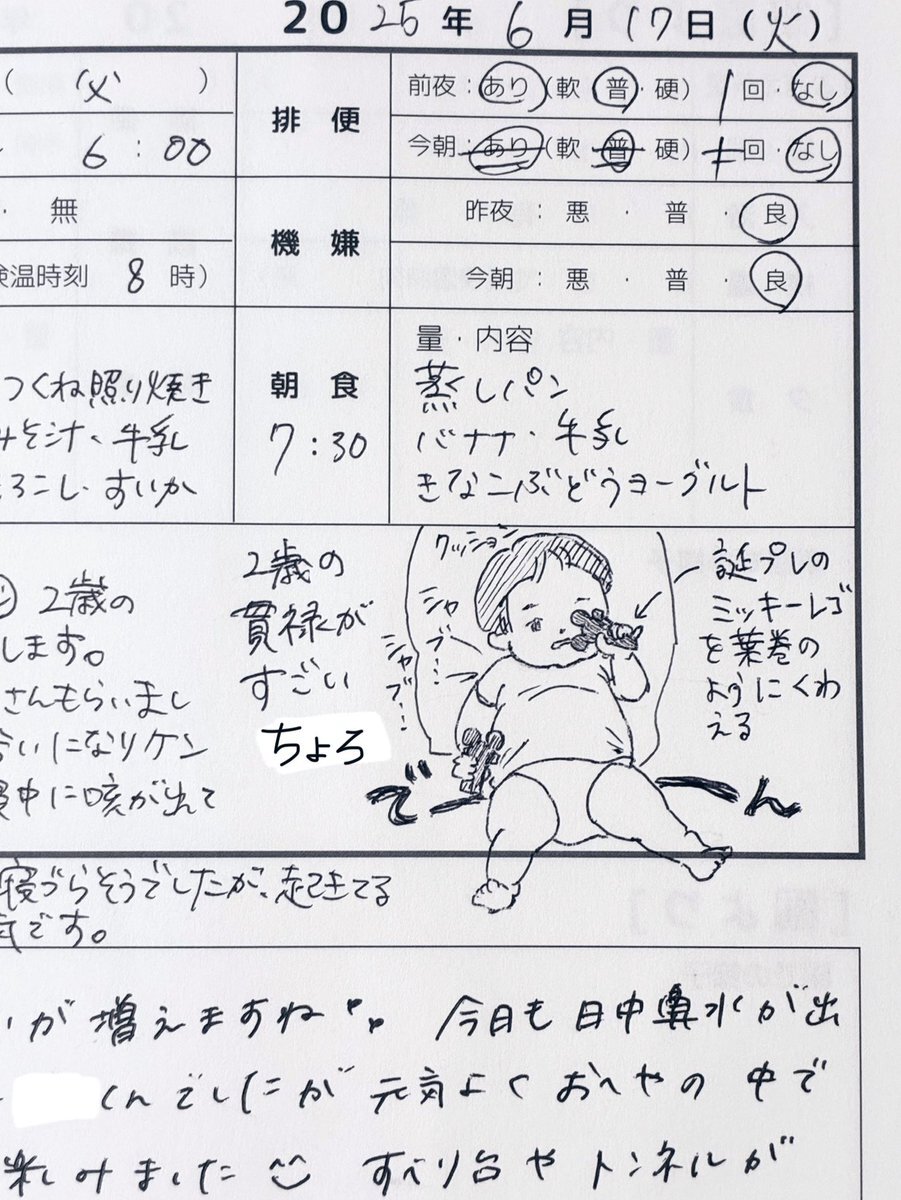 2025年6月17日(火)
(父)
6:00
・ 無
検温時刻 8 時)
排便
前夜:あり(軟・普・硬) 1回・なし
今朝:あり(軟・普・硬) 回・なし
機嫌
昨夜:悪・普・良
今朝:悪・普・良
つくね照り焼き
みそ汁、牛乳
ろこし、すいか
朝食
7:30
量・内容
蒸しパン
バナナ・牛乳
きなこぶどうヨーグルト
2歳の
します。
さんもらいまし
合いになりケン
中に咳が出て
寝づらそうでしたが、起きてる
気です。
2歳の
貫禄が
すごい
ちょろ
クッション
シャブ…
シャブ…
誕プレの
ミッキーレゴ
を葉巻の
ようにくわ
える
でーーん
が増えますね 今日も日中鼻水が出
くんでしたが元気よくおへやの中で
楽しみました すべり台やトンネルが